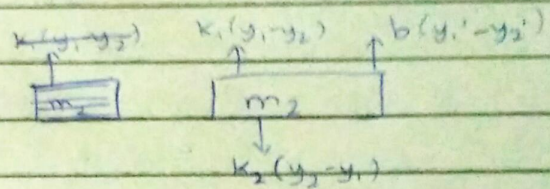 k1(y1-y2) k1(y1-y2) b(y1'-y2')
m2 m2
k2(y2-y1)